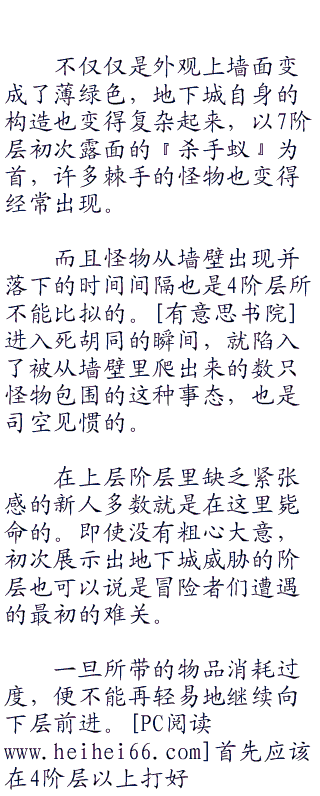 不仅仅是外观上墙面变
成了薄绿色，地下城自身的
构造也变得复杂起来，以7阶
层初次露面的『杀手蚁』为
首，许多棘手的怪物也变得
经常出现。
而且怪物从墙壁出现并
落下的时间间隔也是4阶层所
不能比拟的。[有意思书院]
进入死胡同的瞬间，就陷入
了被从墙壁里爬出来的数只
怪物包围的这种事态，也是
司空见惯的。
在上层阶层里缺乏紧张
感的新人多数就是在这里毙
命的。即使没有粗心大意，
初次展示出地下城威胁的阶
层也可以说是冒险者们遭遇
的最初的难关。
一旦所带的物品消耗过
度，便不能再轻易地继续向
下层前进。[PC阅读
www.heihei66.com]首先应该
在4阶层以上打好